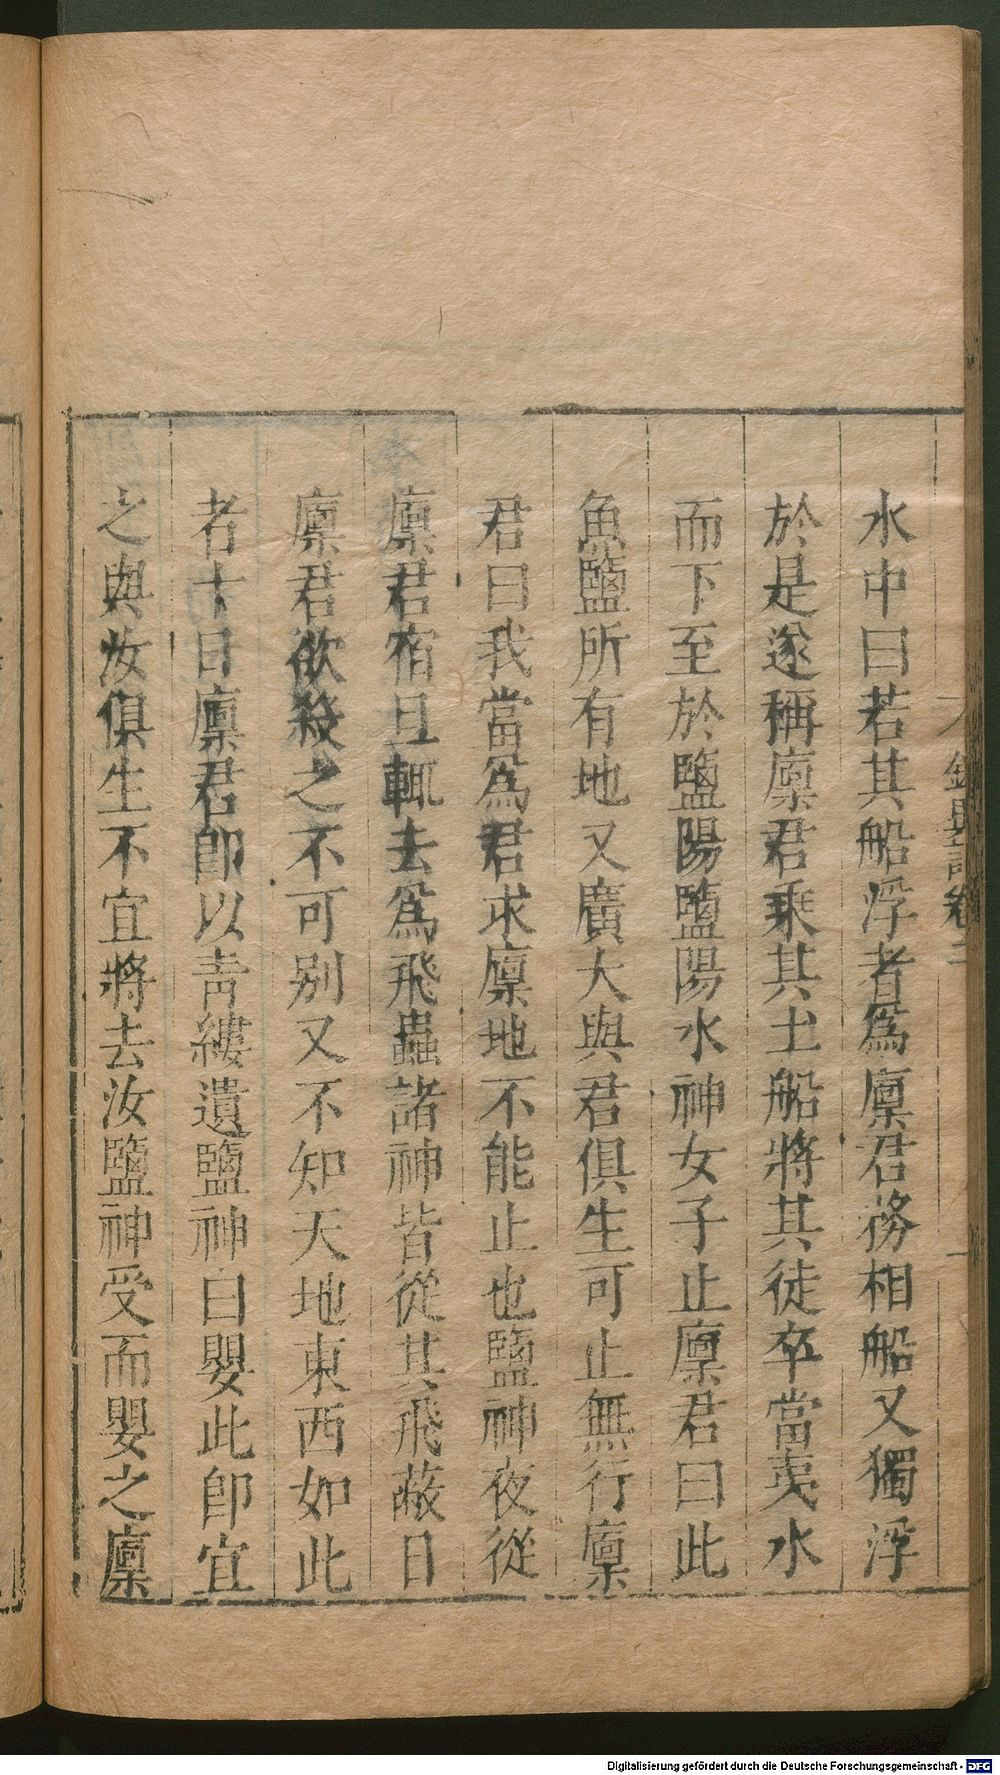 水中曰若其船浮者爲廩君務相船又獨浮
於是遂稱廩君乘其土船將其徒卒當夷水
而下至於鹽陽鹽陽水神女子止廩君曰此
魚鹽所有地又廣大與君俱生可止無行廩
君曰我當爲君求廩地不能止也鹽神夜從
廩君宿旦輒去爲飛蟲諸神皆從其飛蔽日
廩君欲殺之不可別又不知天地東西如此
者十日廩君卽以靑縷遺鹽神曰嬰此卽宜
之與汝俱生不宜將去汝鹽神受而嬰之廩
Digitalisierung gefördert durch die Deutsche Forschungsgemeinschaft - DFG